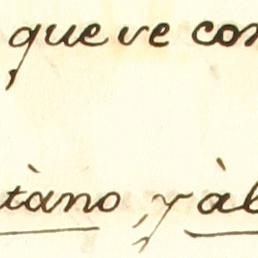 , que ve con
tàno, y àl